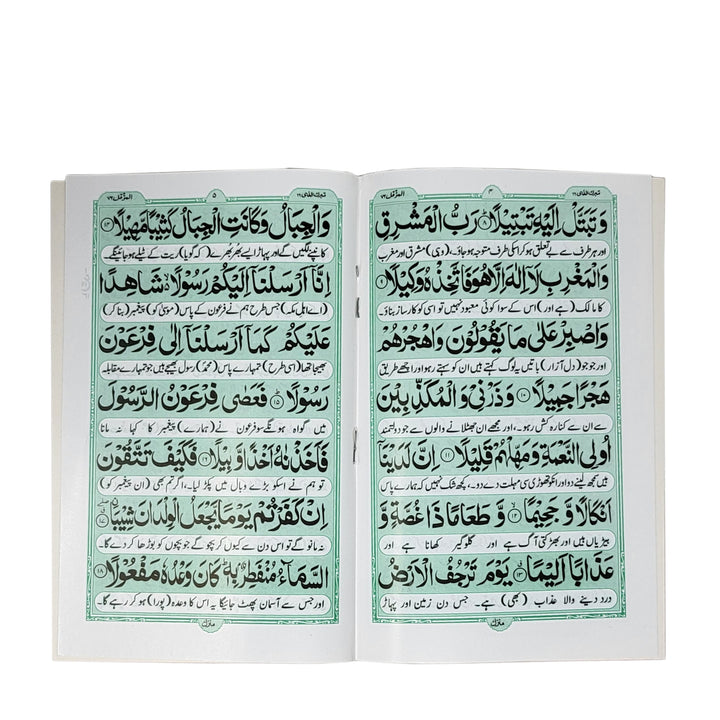 تبرك الذى ٢٩ ۴ المزمل ٧٣
وَتَبَتَّلْ اِلَيْهِ تَبْتِيْلًا ﴿٨﴾ رَبُّ الْمَشْرِقِ
اور ہر طرف سے بے تعلق ہو کر اسی کی طرف متوجہ ہو جاؤ۔ (وہی) مشرق اور مغرب
وَالْمَغْرِبِ لَآ اِلٰهَ اِلَّا هُوَ فَاتَّخِذْهُ وَكِيْلًا ﴿٩﴾
کا مالک (ہے اور) اس کے سوا کوئی معبود نہیں تو اسی کو کارساز بناؤ۔
وَاصْبِرْ عَلٰى مَا يَقُوْلُوْنَ وَاهْجُرْهُمْ
اور جو جو (دل آزار) باتیں یہ لوگ کہتے ہیں ان کو سہتے رہو اور اچھے طریق
هَجْرًا جَمِيْلًا ﴿١٠﴾ وَذَرْنِيْ وَالْمُكَذِّبِيْنَ
سے ان سے کنارہ کش رہو۔ اور مجھے ان جھٹلانے والوں سے جو دولتمند
اُولِى النَّعْمَةِ وَمَهِّلْهُمْ قَلِيْلًا ﴿١١﴾ اِنَّ لَدَيْنَآ
ہیں سمجھ لینے دو اور انکو تھوڑی سی مہلت دے دو۔ کچھ شک نہیں کہ ہمارے پاس
اَنْكَالًا وَّجَحِيْمًا ﴿١٢﴾ وَّطَعَامًا ذَا غُصَّةٍ وَّ
بیڑیاں ہیں اور بھڑکتی آگ ہے اور گلوگیر کھانا ہے اور
عَذَابًا اَلِيْمًا ﴿١٣﴾ يَوْمَ تَرْجُفُ الْاَرْضُ
درد دینے والا عذاب (بھی) ہے۔ جس دن زمین اور پہاڑ
منزل
تبرك الذى ٢٩ ۵ المزمل ٧٣
وَالْجِبَالُ وَكَانَتِ الْجِبَالُ كَثِيْبًا مَّهِيْلًا ﴿١٤﴾
کانپنے لگیں گے اور پہاڑ ایسے بھر بھرے (کہ گویا) ریت کے ٹیلے ہو جائینگے۔
اِنَّآ اَرْسَلْنَآ اِلَيْكُمْ رَسُوْلًا شَاهِدًا
(اے اہل مکہ) جس طرح ہم نے فرعون کے پاس (موسیٰ کو) پیغمبر (بنا کر)
عَلَيْكُمْ كَمَآ اَرْسَلْنَآ اِلٰى فِرْعَوْنَ
بھیجا تھا (اسی طرح) تمہارے پاس (محمد) رسول بھیجے ہیں جو تمہارے مقابلہ
رَسُوْلًا ﴿١٥﴾ فَعَصٰى فِرْعَوْنُ الرَّسُوْلَ
میں گواہ ہونگے سو فرعون نے (ہمارے) پیغمبر کا کہا نہ مانا
فَاَخَذْنٰهُ اَخْذًا وَّبِيْلًا ﴿١٦﴾ فَكَيْفَ تَتَّقُوْنَ
تو ہم نے اسکو بڑے وبال میں پکڑ لیا۔ اگر تم بھی (ان پیغمبر کو)
اِنْ كَفَرْتُمْ يَوْمًا يَّجْعَلُ الْوِلْدَانَ شِيْبًا ﴿١٧﴾
نہ مانو گے تو اس دن سے کیوں کر بچو گے جو بچوں کو بوڑھا کر دے گا۔
السَّمَآءُ مُنْفَطِرٌۢ بِهٖ كَانَ وَعْدُهٗ مَفْعُوْلًا ﴿١٨﴾
اور جس سے آسمان پھٹ جائیگا یہ اس کا وعدہ (پورا) ہو کر رہے گا۔
منزل